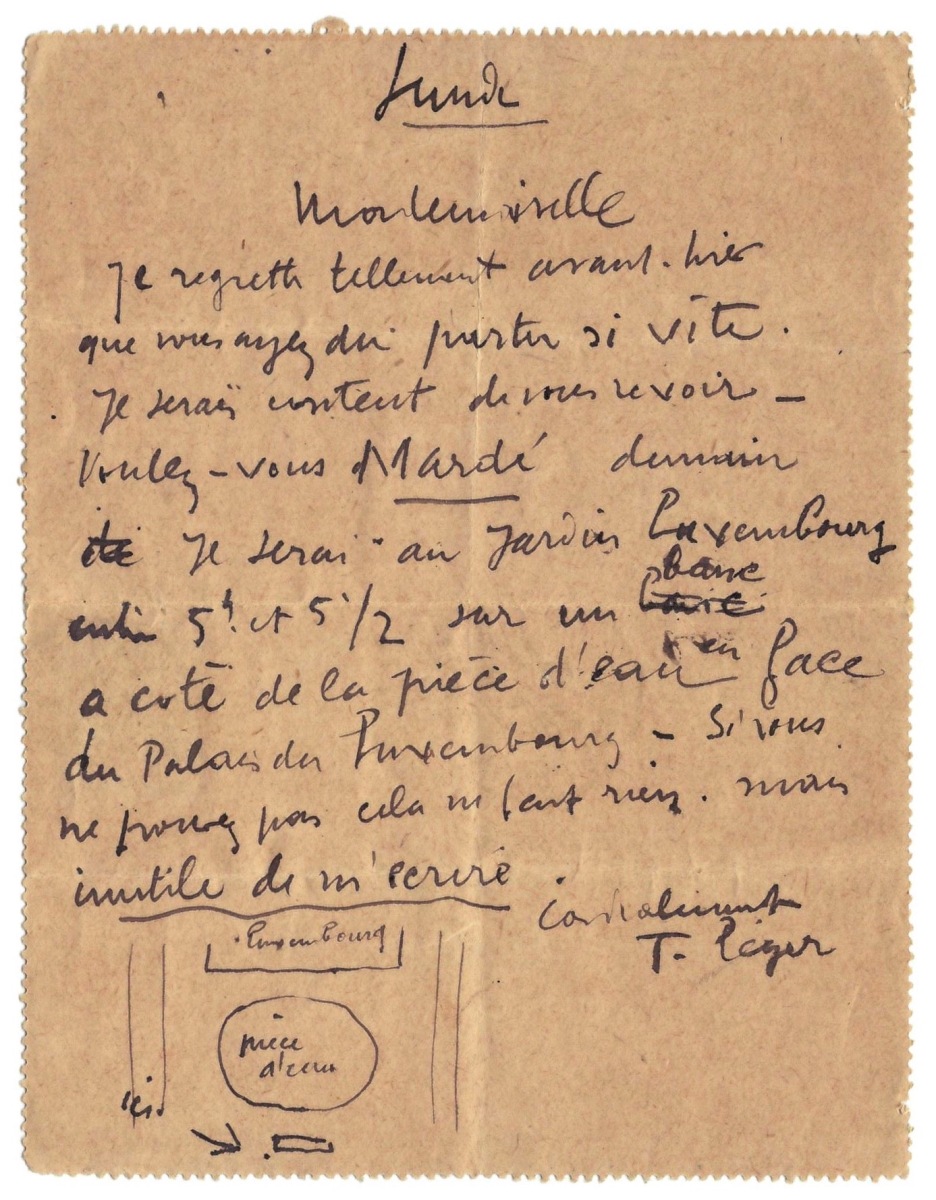 Lundi
Mademoiselle
Je regrette tellement avant-hier
que vous ayez du partir si vite.
Je serai content de vous revoir –
Voulez-vous Mardi demain
Je serai au Jardin Luxembourg
entre 5h. et 5 1/2 sur un banc
a coté de la pièce d'eau en face
du Palais du Luxembourg – Si vous
ne pouvez pas cela ne fait rien. mais
inutile de m'ecrire
Cordialement
F. Léger
Luxembourg
pièce
d'eau
ici